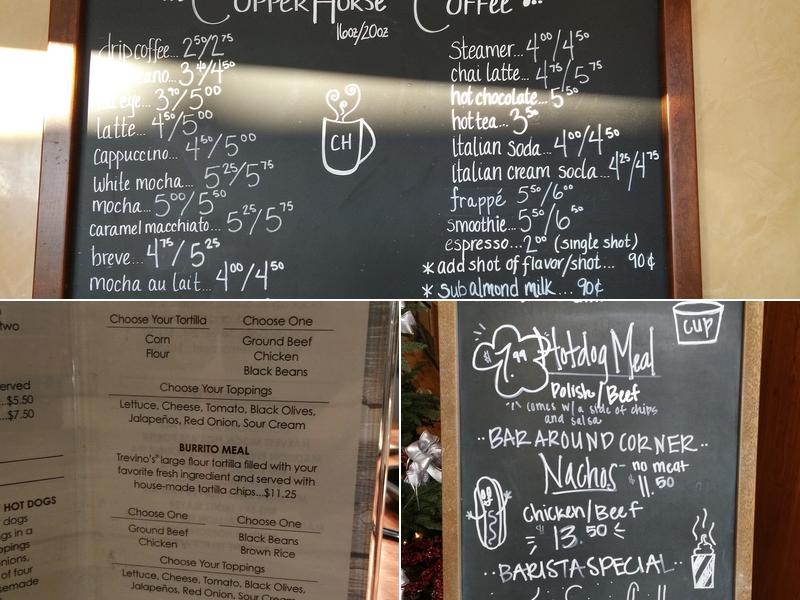 CopperHorse Coffee
16oz/20oz
drip coffee... 2⁵⁰/2⁷⁵
3⁴⁰/4⁵⁰
eye... 3⁹⁰/5⁰⁰
latte... 4⁵⁰/5⁰⁰
cappuccino... 4⁵⁰/5⁰⁰
white mocha... 5²⁵/5⁷⁵
mocha... 5⁰⁰/5⁵⁰
caramel macchiato... 5²⁵/5⁷⁵
breve... 4⁷⁵/5²⁵
mocha au lait... 4⁰⁰/4⁵⁰
CH
Steamer... 4⁰⁰/4⁵⁰
chai latte... 4⁷⁵/5⁷⁵
hot chocolate... 5⁵⁰
hot tea... 3⁵⁰
Italian soda... 4⁰⁰/4⁵⁰
Italian cream soda... 4²⁵/4⁷⁵
frappé 5⁵⁰/6⁰⁰
smoothie... 5⁵⁰/6⁵⁰
espresso... 2⁰⁰ (single shot)
* add shot of flavor/shot... 90¢
* sub almond milk... 90¢
two
erved
...$5.50
...$7.50
HOT DOGS
dogs
gs in a
ppings
onions,
of four
semade
Choose Your Tortilla
Corn
Flour
Choose One
Ground Beef
Chicken
Black Beans
Choose Your Toppings
Lettuce, Cheese, Tomato, Black Olives,
Jalapeños, Red Onion, Sour Cream
BURRITO MEAL
Trevino's® large flour tortilla filled with your
favorite fresh ingredient and served with
house-made tortilla chips...$11.25
Choose One
Ground Beef
Chicken
Choose One
Black Beans
Brown Rice
Choose Your Toppings
Lettuce, Cheese, Tomato, Black Olives,
Jalapeños, Red Onion, Sour Cream
CUP
$7.99 Hotdog Meal
Polish/Beef
comes w/ a side of chips
and salsa
··BAR AROUND CORNER··
Nachos - no meat
$11.50
Chicken/Beef
$13.50
··BARISTA SPECIAL··